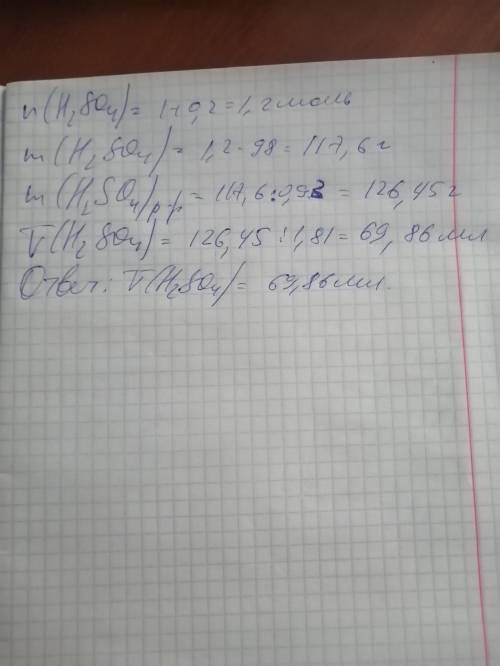 n(H₂SO₄) = 1+0,2 = 1,2 моль
m(H₂SO₄) = 1,2 · 98 = 117,6 г
m(H₂SO₄)р-р = 117,6 : 0,93 = 126,45 г
V(H₂SO₄) = 126,45 : 1,81 = 69,86 мл
Ответ: V(H₂SO₄) = 69,86 мл.